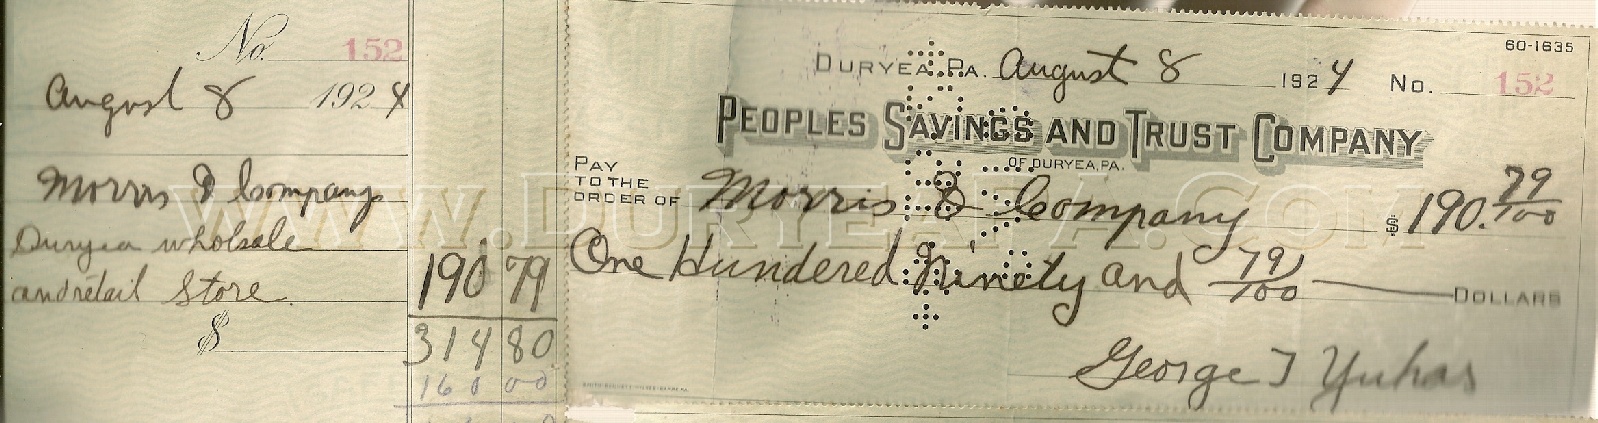 No. 152
August 8 1924
Morris & Company
Duryea wholsale
and retail Store.
$
190 79
314 80
160 00
60-1635
DURYEA, PA. August 8 1924 No. 152
PEOPLES SAVINGS AND TRUST COMPANY
OF DURYEA, PA.
PAY
TO THE
ORDER OF Morris & Company $190.79/100
One Hundered Ninety and 79/100 DOLLARS
George J Yuhas
WWW.DURYEAPA.COM